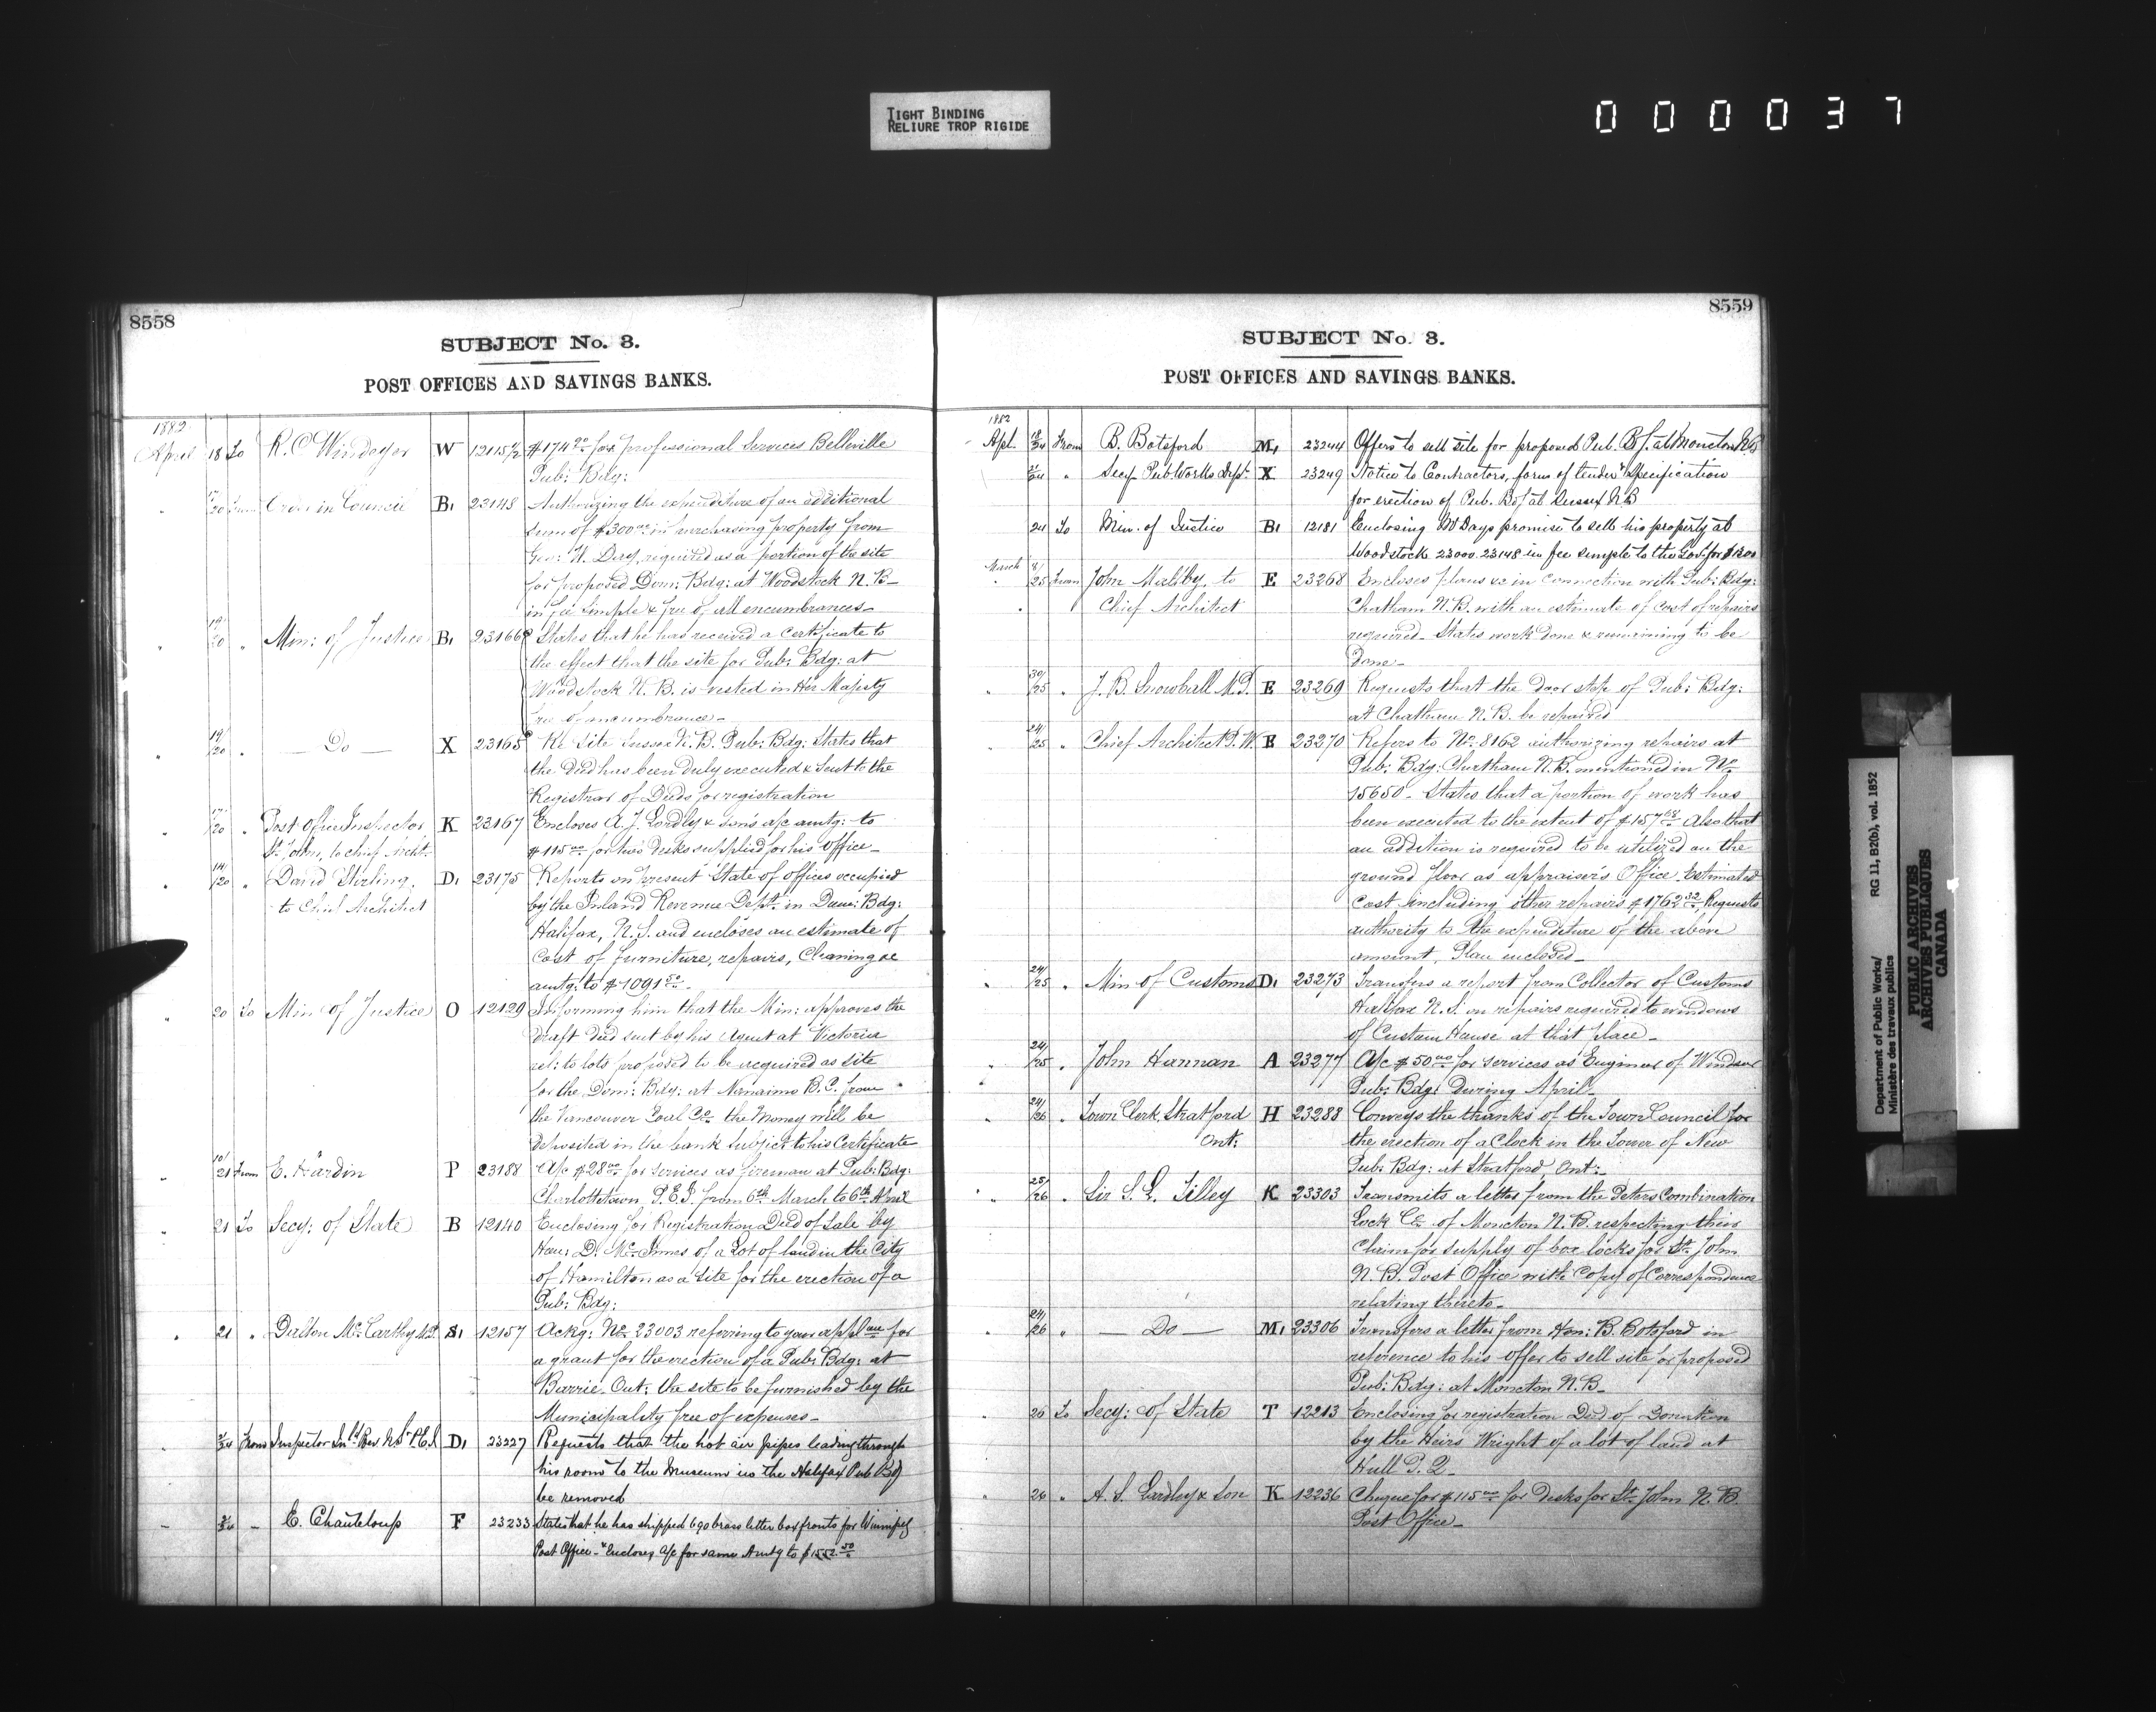 TIGHT BINDING
RELIURE TROP RIGIDE
000037
8558
SUBJECT No. 3.
POST OFFICES AND SAVINGS BANKS.
1882
April 18 To R. C. Windeyer W 12115 1/2 $174.20 for professional Services Bellville
Pub: Bdg:
" 20 From Order in Council B1 23148 Authorizing the expenditure of an additional
sum of $300.00 in purchasing property from
Geo: W. Day, required as a portion of the site
for proposed Dom: Bdg: at Woodstock N. B.
in fee simple & free of all encumbrances
" 19/20 " Min: of Justice B1 23166 States that he has received a Certificate to
the effect that the site for Pub: Bdg: at
Woodstock N. B. is vested in Her Majesty
free of encumbrance
" 19/20 " — Do — X 23165 Re Site Sussex N. B. Pub: Bdg: States that
the Deed has been duly executed & sent to the
Registrar of Deeds for registration
" 17/20 " Post Office Inspector K 23167 Encloses A. J. Lordly & Son's a/c amtg: to
St. John, to Chief Archt. $115.00 for two desks supplied for his office
" 14/20 " David Stirling, D1 23175 Reports on present State of offices occupied
to Chief Architect by the Inland Revenue Dept. in Dom: Bdg:
Halifax, N. S. and encloses an estimate of
cost of furniture, repairs, Cleaning &c
amtg: to $1091.50
" 20 To Min of Justice O 12129 Informing him that the Min: approves the
draft deed sent by his Agent at Victoria
rel: to lots proposed to be acquired as site
for the Dom: Bdg: at Nanaimo B. C. from
the Vancouver Coal Co. the Money will be
deposited in the bank subject to his Certificate
" 10/21 From E. Hardin P 23188 A/c $28.00 for services as fireman at Pub: Bdg:
Charlottetown, P. E. I. from 6th March to 6th April
" 21 To Secy: of State B 12140 Enclosing for Registration Deed of Sale by
Hon: D. McInnes of a Lot of land in the City
of Hamilton as a site for the erection of a
Pub: Bdg:
" 21 " Dalton McCarthy M.P. S1 12157 Ackg: No. 23003 referring to your applon for
a grant for the erection of a Pub: Bdg: at
Barrie Ont: the site to be furnished by the
Municipality free of expenses
" From Inspector Inld. Rev N.S & P.E.I D1 23227 Requests that the hot air pipes leading through
his room to the Museum in the Halifax Pub Bdg
be removed
E. Chanteloup F 23233 States that he has shipped 690 brass letter box fronts for Winnipeg
Post Office & Encloses a/c for same Amtg to $1552.50
8559
SUBJECT No. 3.
POST OFFICES AND SAVINGS BANKS.
1882
Apl. 18/24 From B. Botsford M1 23244 Offers to sell site for proposed Pub. Bg. at Moncton N.B
21/24 " Secy Pub. Works Dept. X 23249 Notice to Contractors, form of tender & Specification
for erection of Pub. Bdg at Sussex N B
24 To Min. of Justice B1 12181 Enclosing W Days promise to sell his property at
Woodstock 23000. 23148 in fee simple to the Govt for $1200
March 8/25 From John Maltby, to E 23268 Encloses plans &c in connection with Pub: Bdg:
Chief Architect Chatham N. B. with an estimate of cost of repairs
required. States work done & remaining to be
done
" 30/25 " J. B. Snowball M.P. E 23269 Requests that the Door step of Pub: Bdg:
at Chatham N. B. be repaired
24/25 " Chief Architect P. W. E 23270 Refers to No. 8162 authorizing repairs at
Pub: Bdg: Chatham N. B. mentioned in No.
15650 - States that a portion of work has
been executed to the extent of $157.68 Also that
an addition is required to be utilized on the
ground floor as appraiser's Office. Estimated
Cost including other repairs $1762.32 Requests
authority to the expenditure of the above
amount, Plan enclosed
" 24/25 " Min of Customs D1 23273 Transfers a report from Collector of Customs
Halifax N. S. on repairs required to windows
of Custom House at that place
" 24/25 " John Hannan A 23277 A/c $50.00 for services as Engineer of Windsor
Pub: Bdg: During April
" 24/26 " Town Clerk, Stratford H 23288 Conveys the thanks of the Town Council for
Ont: the erection of a Clock in the Tower of New
Pub: Bdg: at Stratford, Ont:
" 25/26 " Sir S. L. Tilley K 23303 Transmits a letter from the Peters Combination
Lock Co. of Moncton N. B. respecting their
Claim for supply of box locks for St. John
N. B. Post Office with Copy of Correspondence
relating thereto
" 24/26 " — Do — M1 23306 Transfers a letter from Hon: B. Botsford in
reference to his offer to sell site for proposed
Pub: Bdg: at Moncton N. B.
" 26 To Secy: of State T 12213 Enclosing for registration Deed of Donation
by the Heirs Wright of a lot of land at
Hull P. Q.
" 26 " A. S. Lordley & Son K 12236 Cheque for $115.00 for Desks for St. John N. B.
Post Office
Department of Public Works/ RG 11, B2(b), vol. 1852
Ministère des travaux publics
PUBLIC ARCHIVES
ARCHIVES PUBLIQUES
CANADA